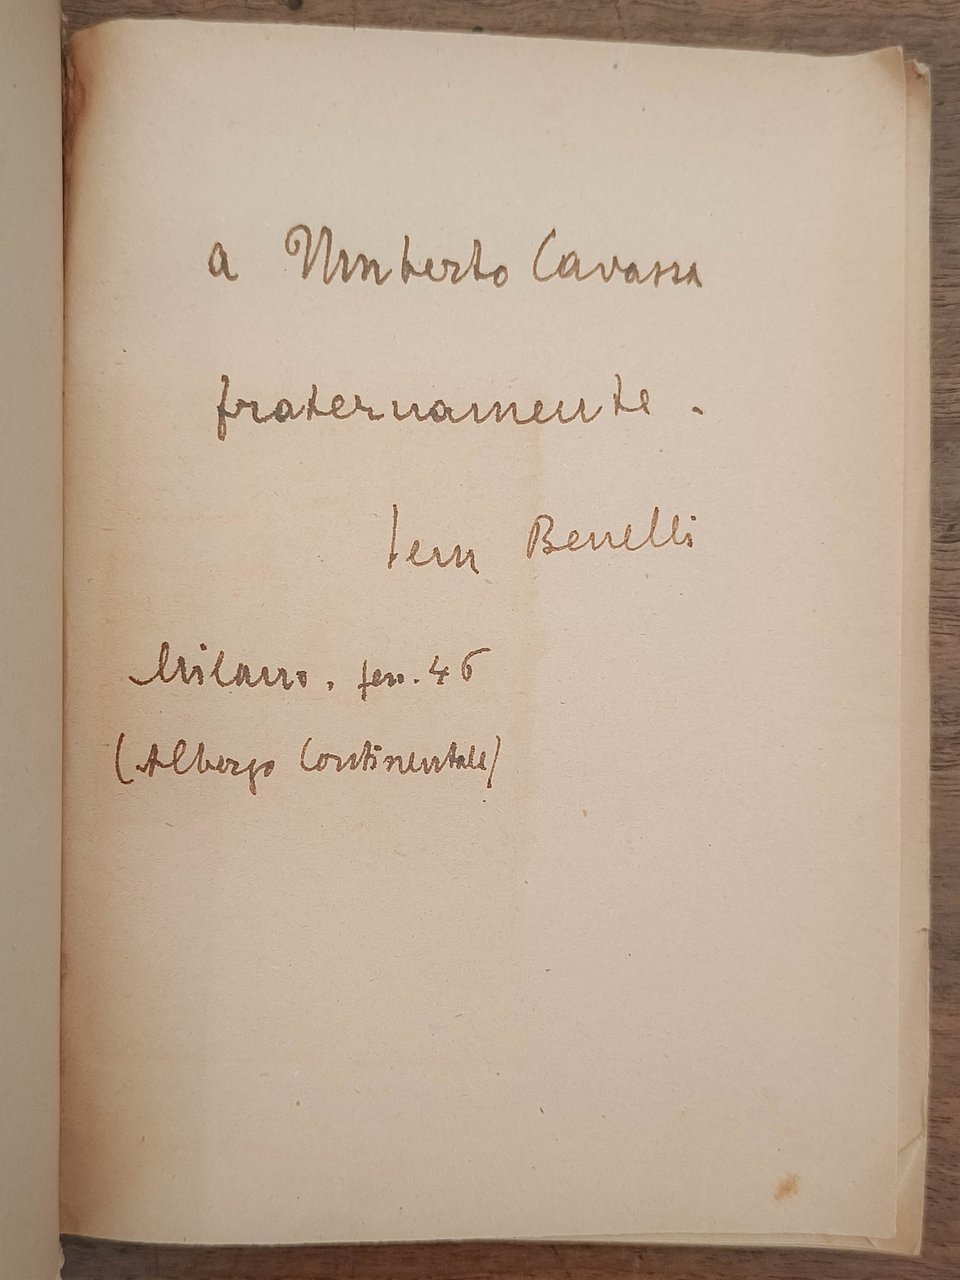 a Umberto Cavassa
fraternamente.
Sem Benelli
Milano. fen. 46
(Albergo Continentale)